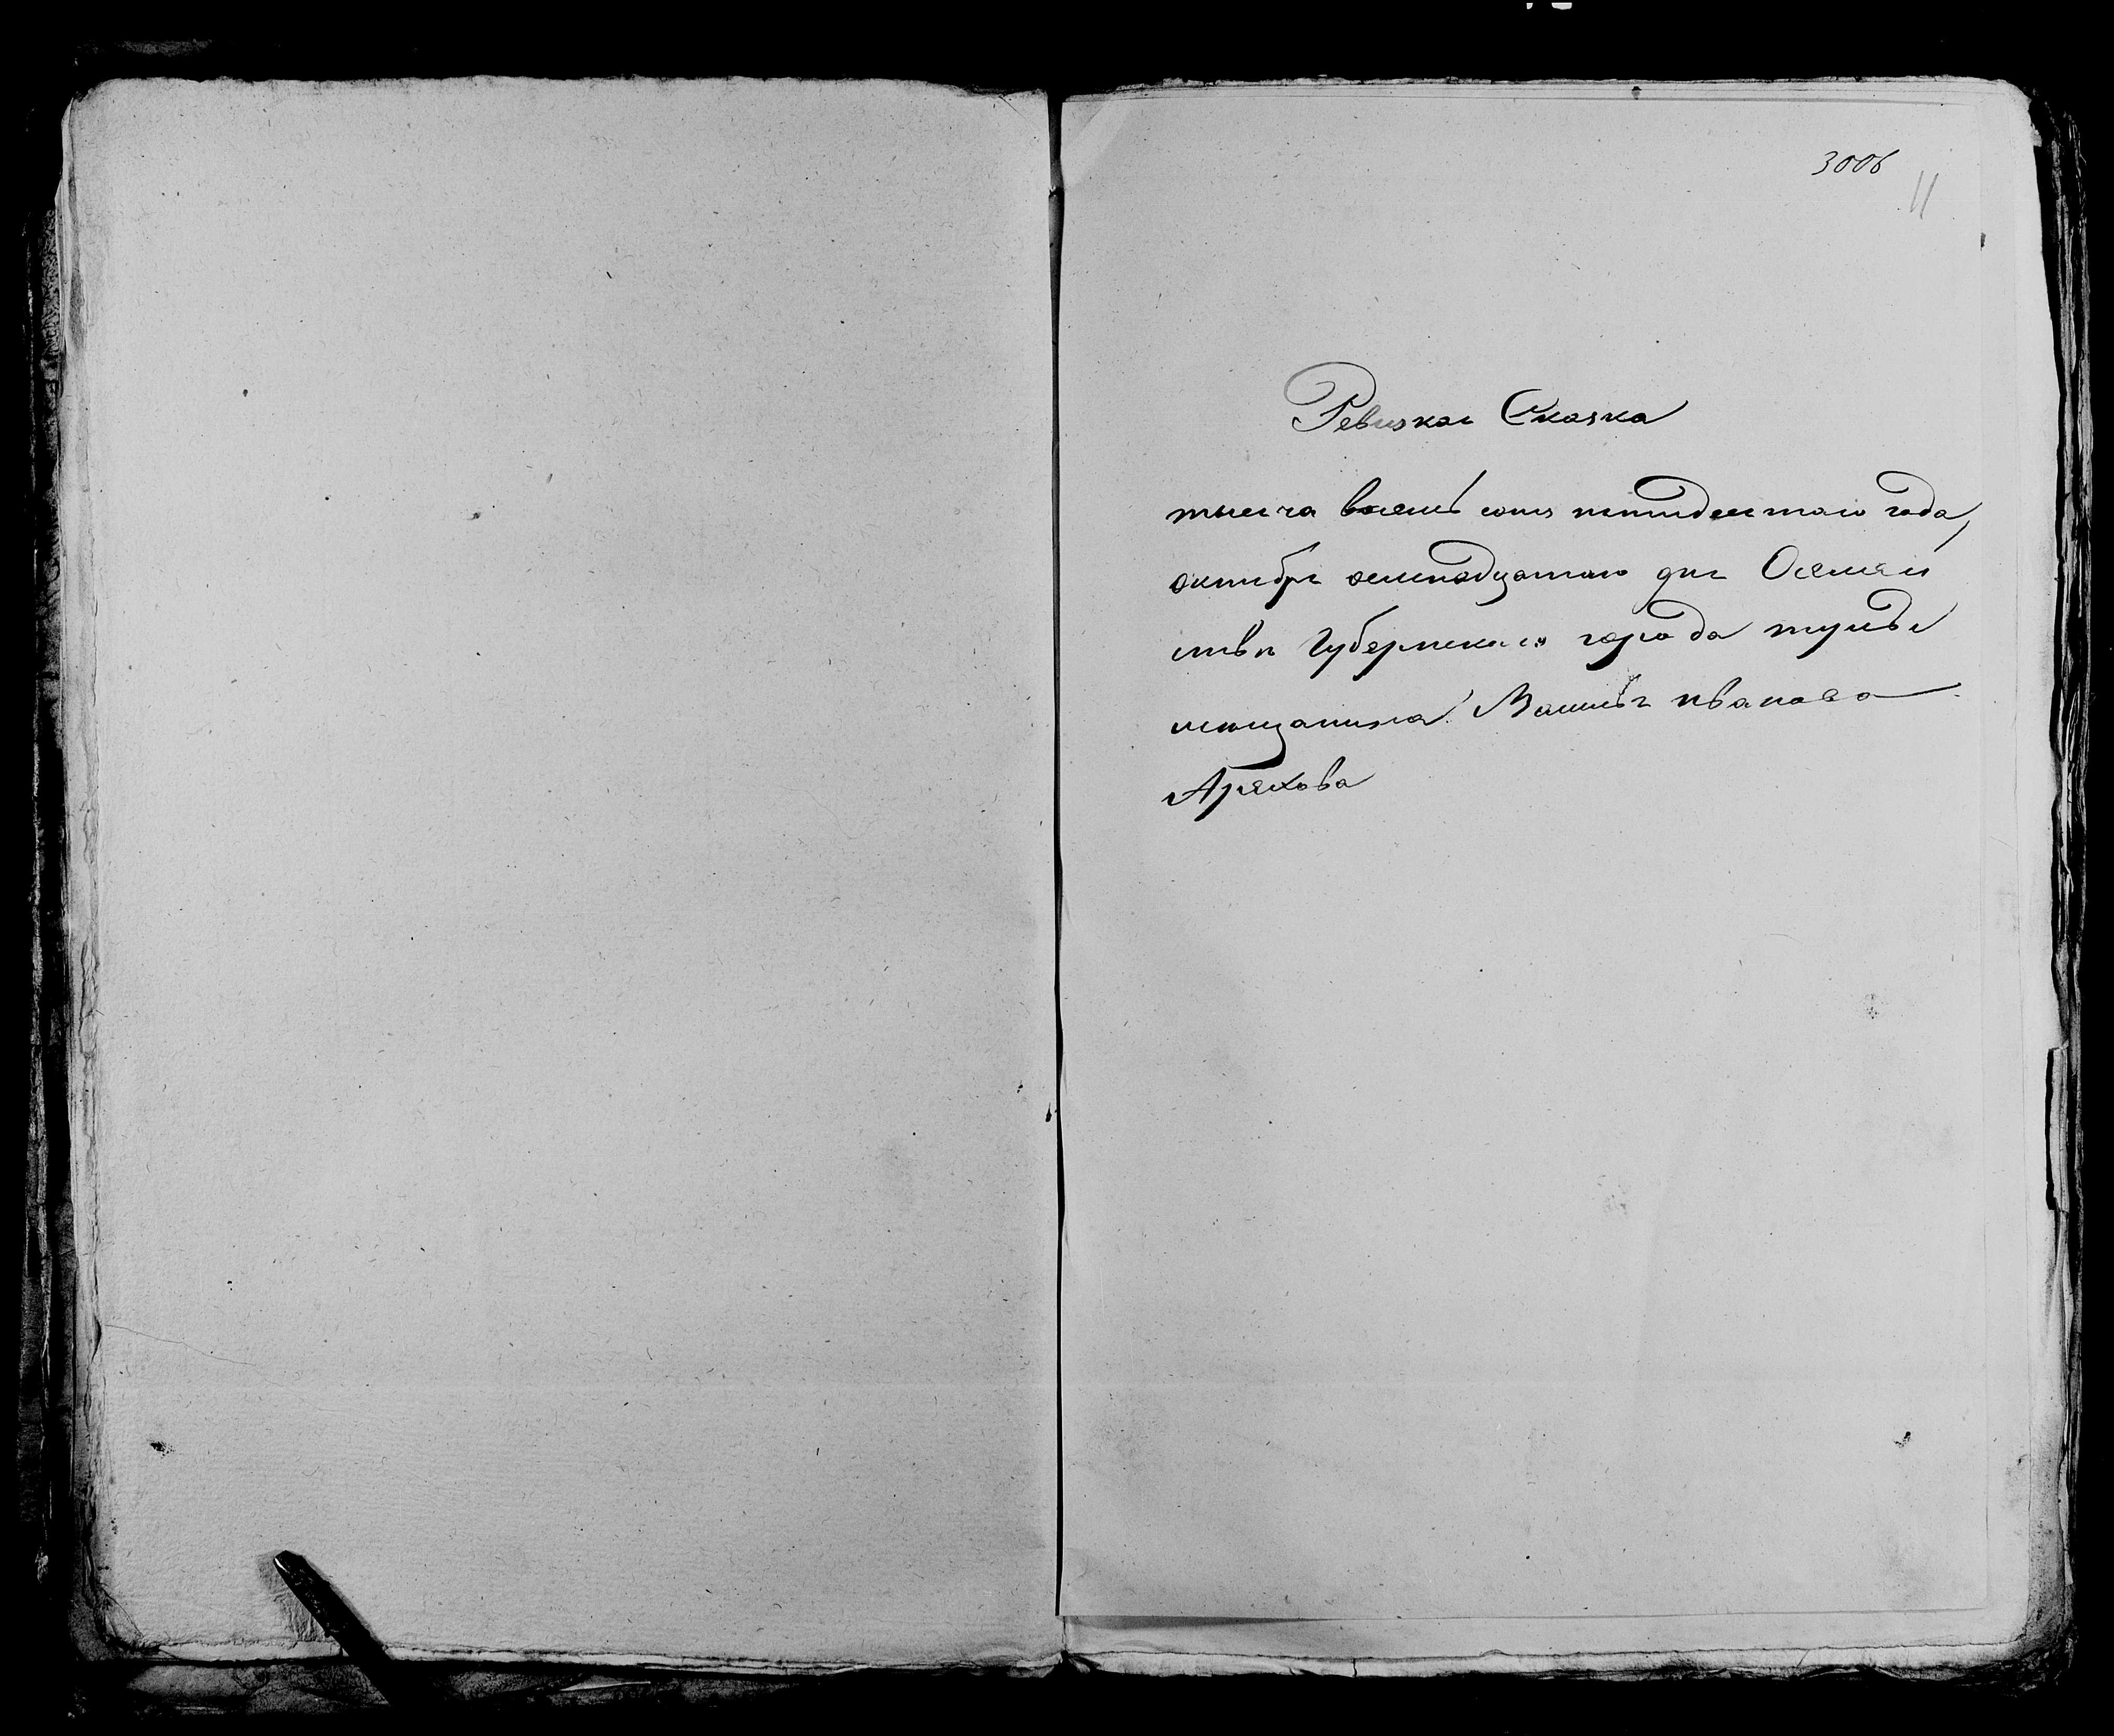 3006
11
Ревизкая Сказка
тысяча восемь сотъ пятидесятаго года,
октября
дня Осемей
ствѣ Губернскаго города тулы
мещанина Василья иванова
Арехова